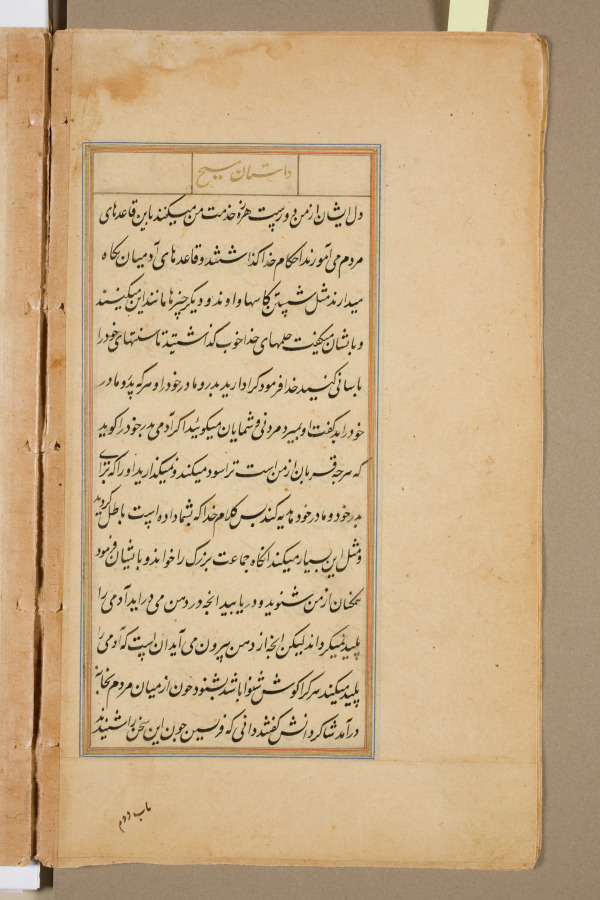 داستان مسیح
دل ایشان از من دورست هرزه خدمت من میکنند باین قاعدهای
مردم می آموزند احکام خدا گذاشتند و قاعدهای آدمیان نگاه
میدارند مثل شستن کاسها و اوند و دیگر چیزها مانند این میکنند
و باشان میگفت حکمهای خدا خوب گذاشتید تا سنتهای خود را
پاسبانی کنید خدا فرمود گرا دارید پدر و مادر خود را و هر که پدر و مادر
خود را بد گفت او بمیرد مردنی و شمایان میگوئید اگر آدمی پدر خود را گوید
که هر چه قربان از من است ترا سود میکند و نمیگذارید او را که برای
پدر خود و مادر خود هدیه کند پس کلام خدا که شما داده است باطل کردید
و مثل این بسیار میکند انگاه جماعت بزرگ را خواند و باشان فرمود
همگنان از من شنوید و دریابید انچه در دهن می دراید آدمی را
پلید نمیگرداند لیکن انچه از دهن بیرون می آید ان است که آدمی را
پلید میکند هر کرا گوش شنوا باشد بشنود چون از میان مردم بخانه
درآمد شاگردانش گفتند دانی که فریسین چون این سخن را شنیدند
باب دوم